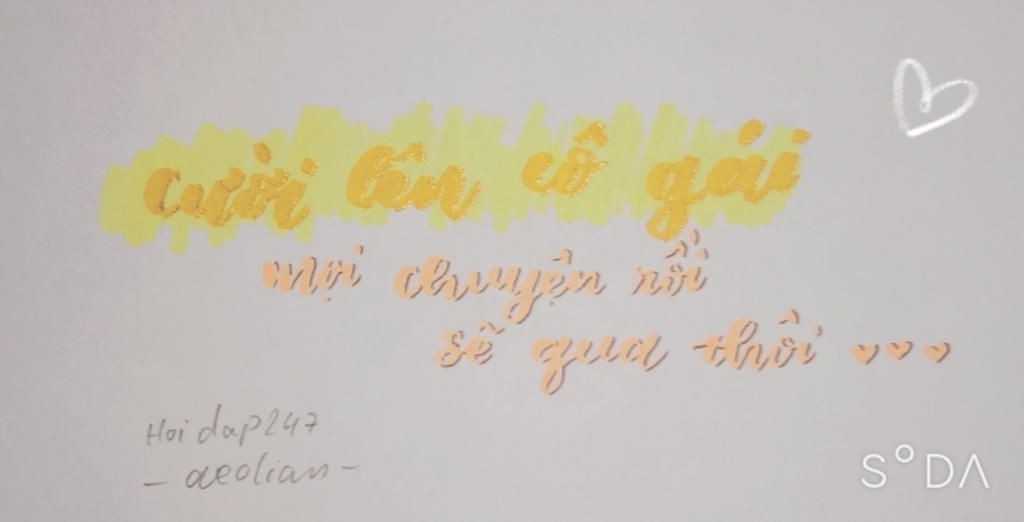 cười lên cô gái
mọi chuyện rồi
sẽ qua thôi
Hoidap247
- aeolian -
SODA